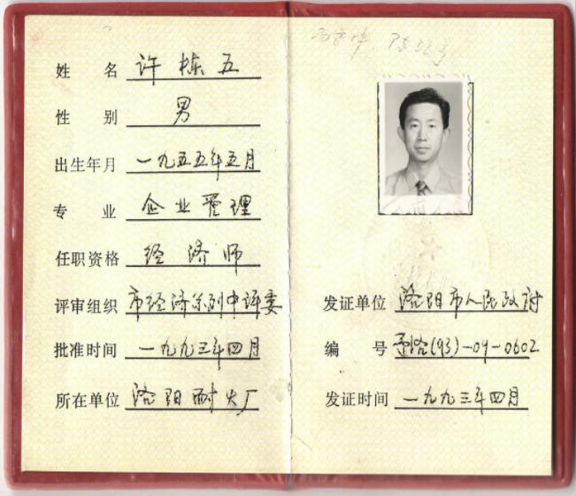 姓 名 许栋五
性 别 男
出生年月 一九五五年五月
专 业 企业管理
任职资格 经济师
评审组织 市经济系列中评委
批准时间 一九九三年四月
所在单位 洛阳耐火厂
发证单位 洛阳市人民政府
编 号 (93)-04-0602
发证时间 一九九三年四月